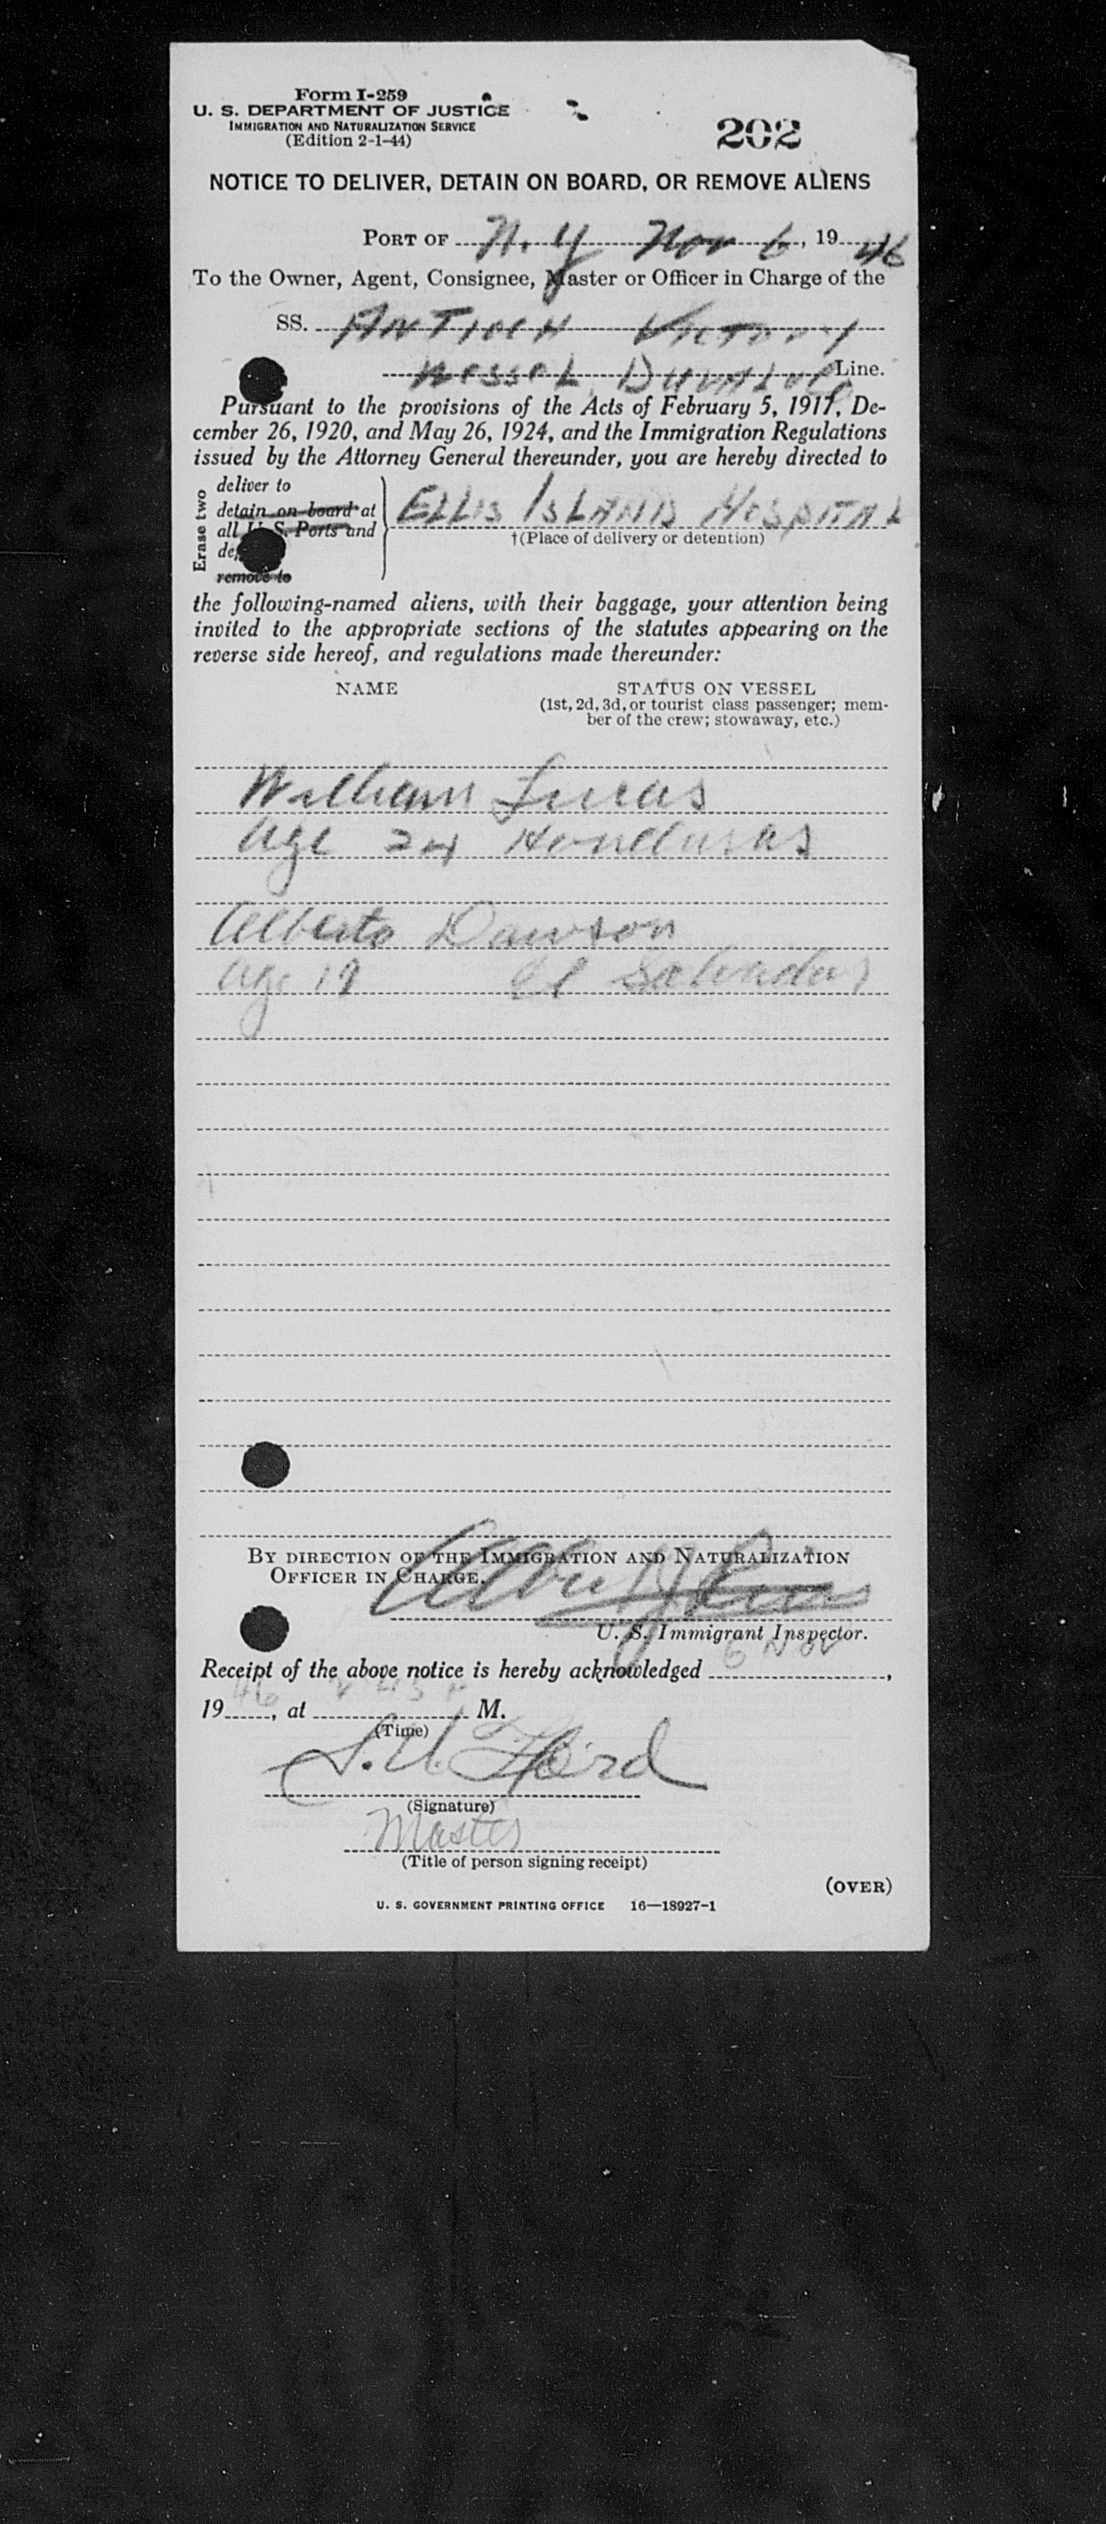 Form I-259
U. S. DEPARTMENT OF JUSTICE
IMMIGRATION AND NATURALIZATION SERVICE
(Edition 2-1-44)
202
NOTICE TO DELIVER, DETAIN ON BOARD, OR REMOVE ALIENS
PORT OF N. Y Nov 6, 19 46
To the Owner, Agent, Consignee, Master or Officer in Charge of the
SS. ANTIOCH VICTORY
Line.
Pursuant to the provisions of the Acts of February 5, 1917, De-
cember 26, 1920, and May 26, 1924, and the Immigration Regulations
issued by the Attorney General thereunder, you are hereby directed to
Erase two
deliver to
detain on board at
all U. S. Ports and
remove to
ELLIS ISLAND HOSPITAL
†(Place of delivery or detention)
the following-named aliens, with their baggage, your attention being
invited to the appropriate sections of the statutes appearing on the
reverse side hereof, and regulations made thereunder:
NAME STATUS ON VESSEL
(1st, 2d, 3d, or tourist class passenger; mem-
ber of the crew; stowaway, etc.)
William Lucas
Age 24 Honduras
Alberto Dawson
Age 19 El Salvador
BY DIRECTION OF THE IMMIGRATION AND NATURALIZATION
OFFICER IN CHARGE.
U. S. Immigrant Inspector.
Receipt of the above notice is hereby acknowledged 6 Nov,
19 46, at M.
(Time)
Ford
(Signature)
Master
(Title of person signing receipt)
(OVER)
U. S. GOVERNMENT PRINTING OFFICE 16—18927-1